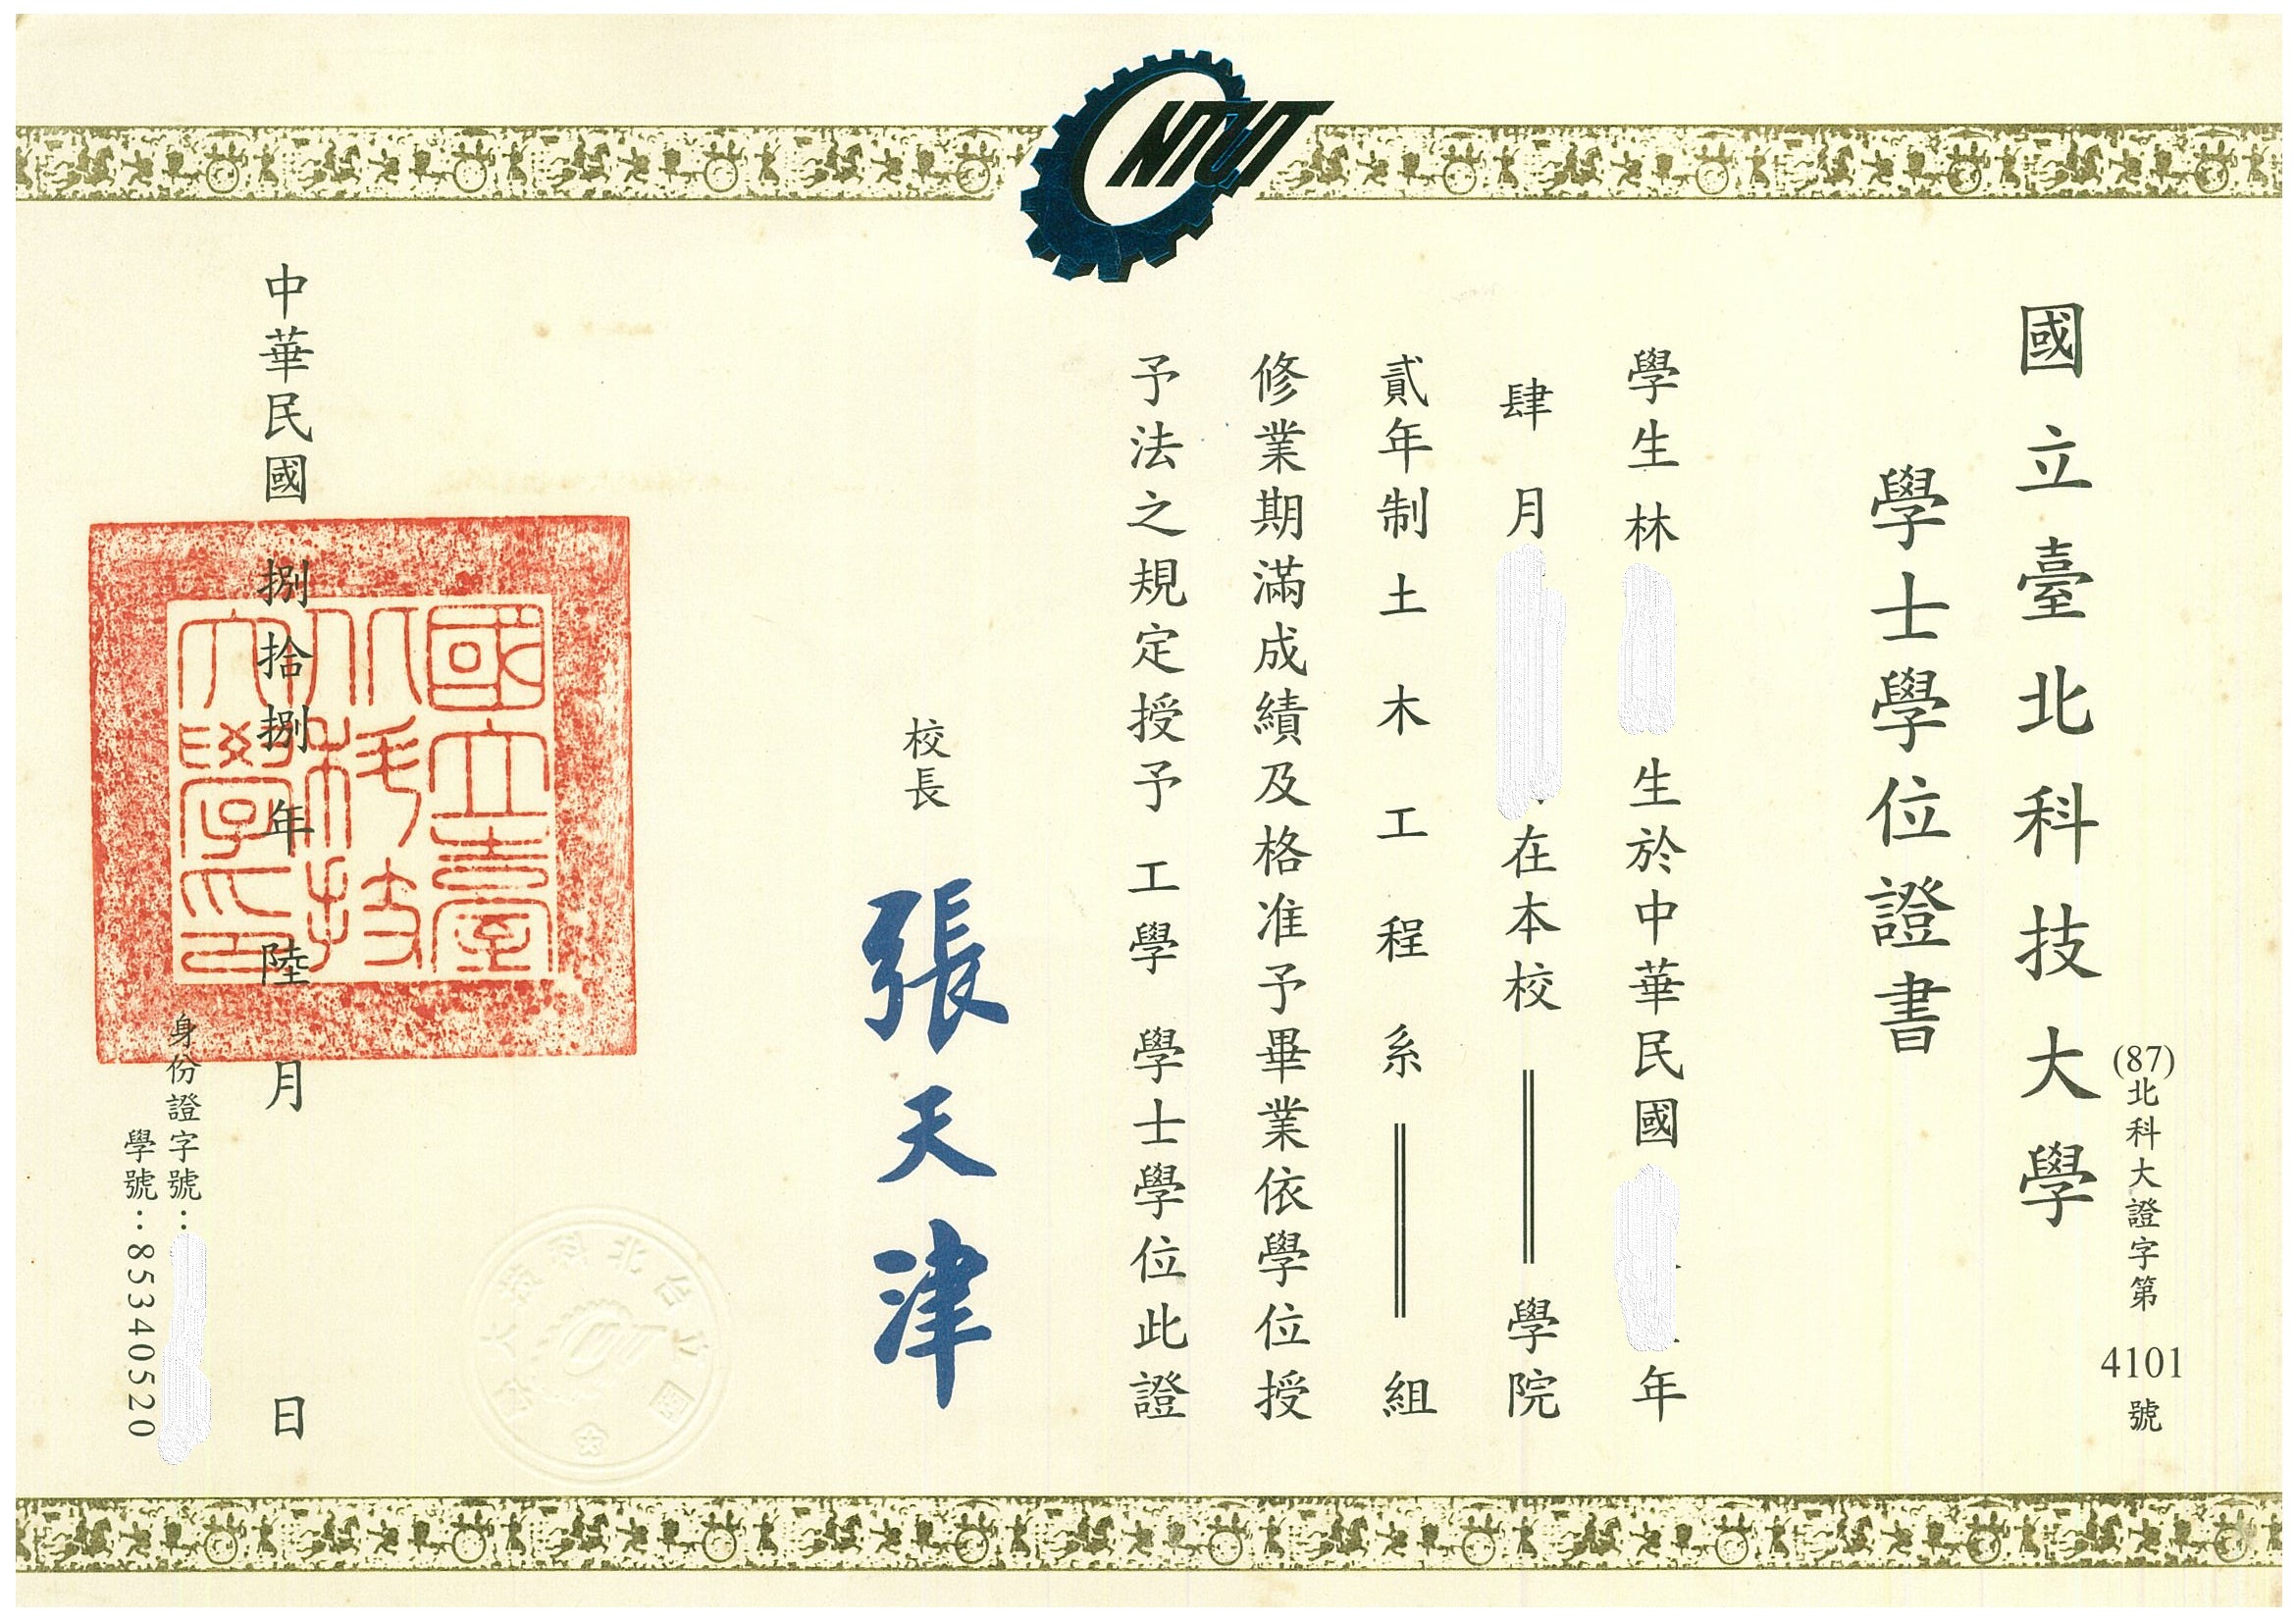 NTUT
(87)北科大證字第 4101 號
國立臺北科技大學
學士學位證書
學生 林 生於中華民國 年
肆 月 在本校 學院
貳年制 土木工程系 組
修業期滿成績及格准予畢業依學位授
予法之規定授予 工學 學士學位此證
校長 張天津
國立臺
北科技
大學印
中華民國 捌拾捌年 陸 月 日
身份證字號：
學號：85340520